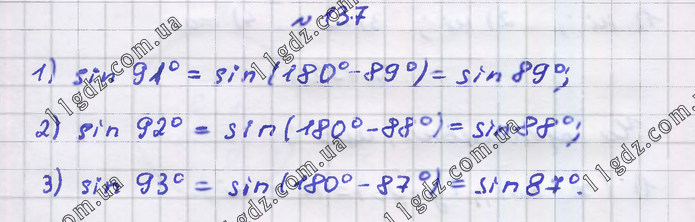 № 137
1) sin 91° = sin(180° - 89°) = sin 89°;
2) sin 92° = sin(180° - 88°) = sin 88°;
3) sin 93° = sin(180° - 87°) = sin 87°.
11gdz.com.ua
11gdz.com.ua
11gdz.com.ua
11gdz.com.ua
11gdz.com.ua